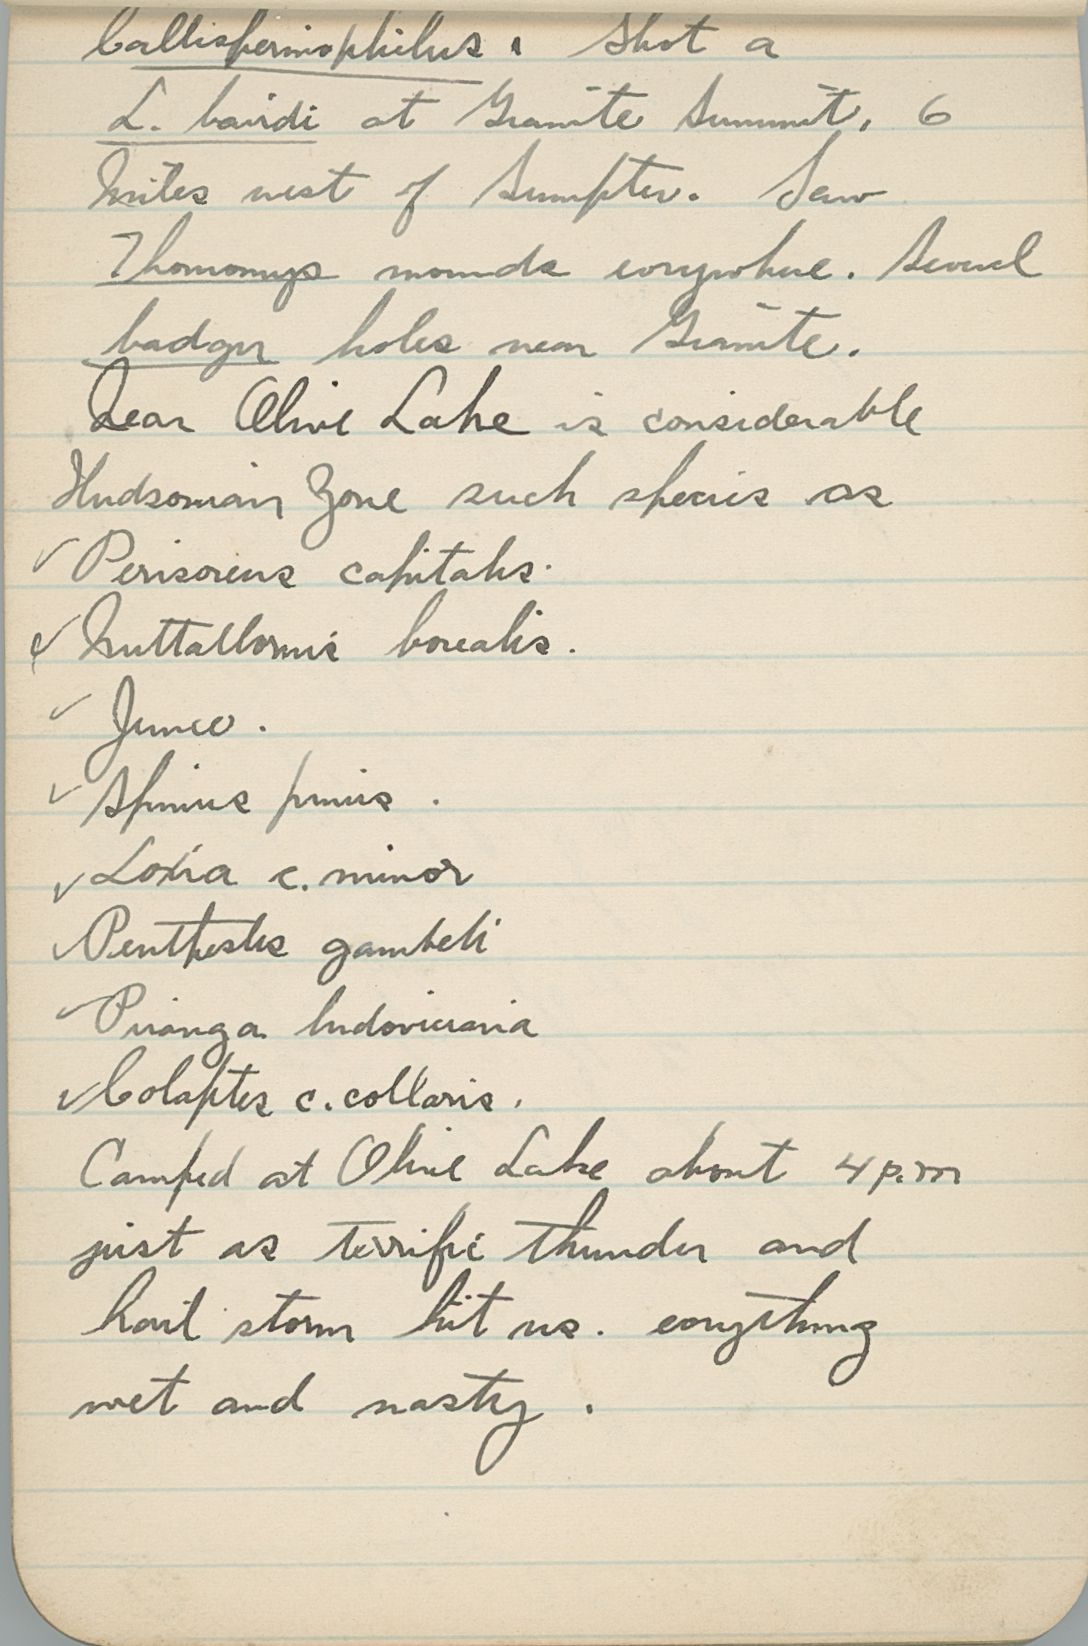 Callispermophilus. Shot a
L. bairdi at Granite Summit, 6
Miles west of Sumpter. Saw
Thomomys mounds everywhere. Several
badger holes near Granite.
Near Olive Lake is considerable
Hudsonian Zone such species as
✓ Perisoreus capitalis.
✓ Nuttallornis borealis.
✓ Junco.
✓ Spinus pinus.
✓ Loxia c. minor
✓ Penthestes gambeli
✓ Piranga ludoviciana
✓ Colaptes c. collaris.
Camped at Olive Lake about 4 p.m
just as terrific thunder and
hail storm hit us. everything
wet and nasty.